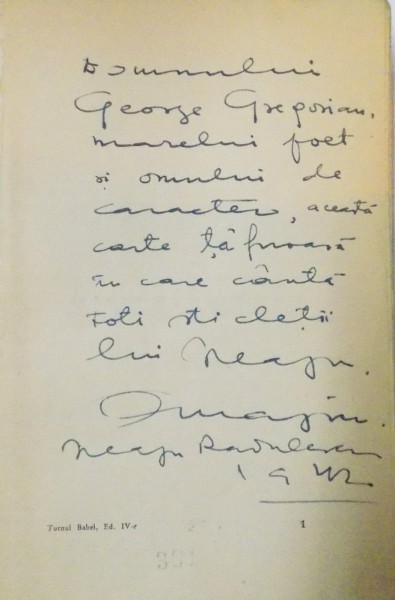 Domnului
George Gregorian,
marelui poet
și omului de
caracter, această
carte țâfnoasă
în care cântă
toți sticleții
lui Neagu.
Omagiu.
Neagu Radulescu
1942
Turnul Babel, Ed. IV-r 1